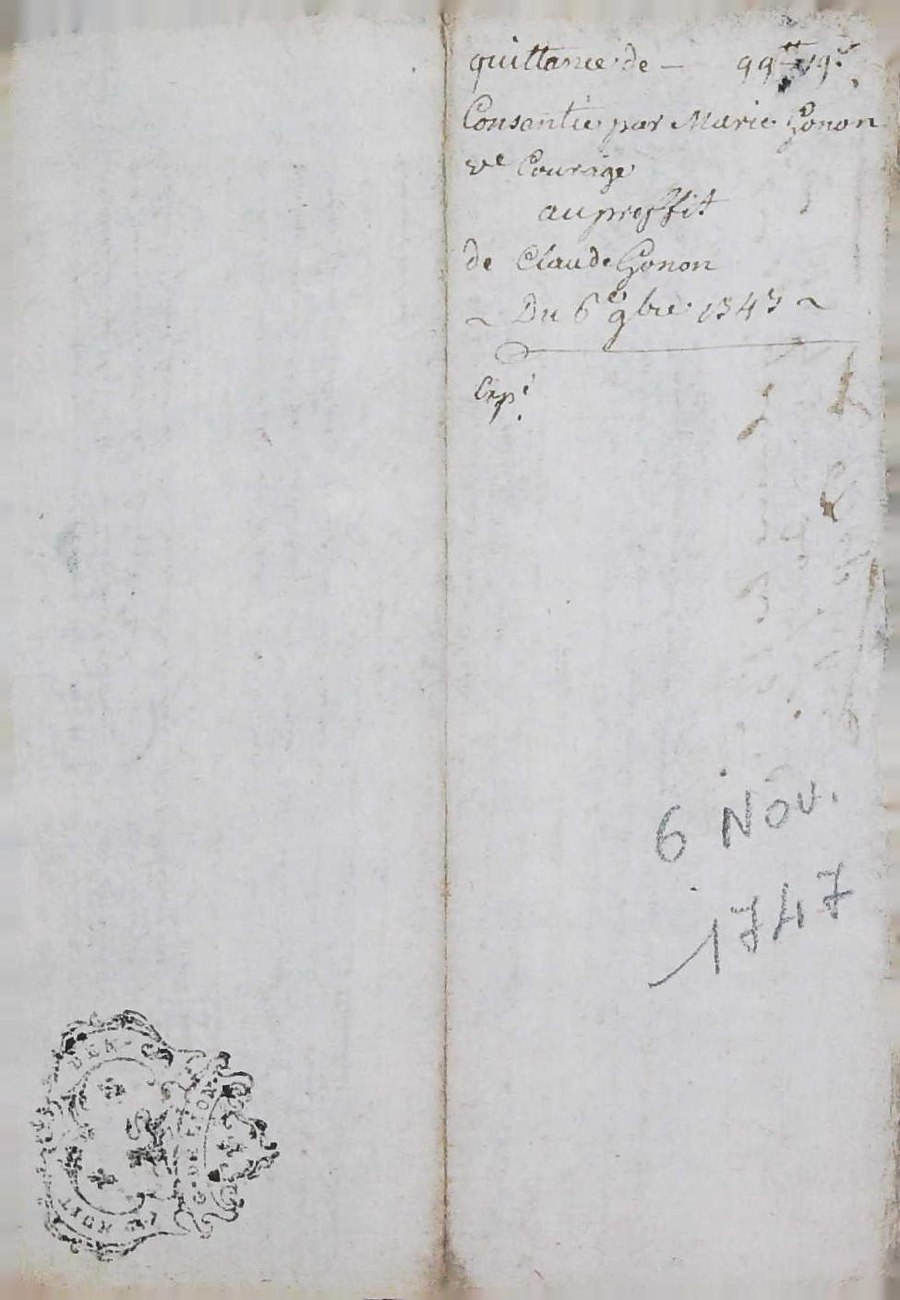 quittance de — 99tt 19s
Consantie par Marie Gonon
ve Courage
au proffit
de Claude Gonon
~ Du 6e 9bre 1747 ~
Exp.
6 Nov.
1747
DEN.
G. DE LYON